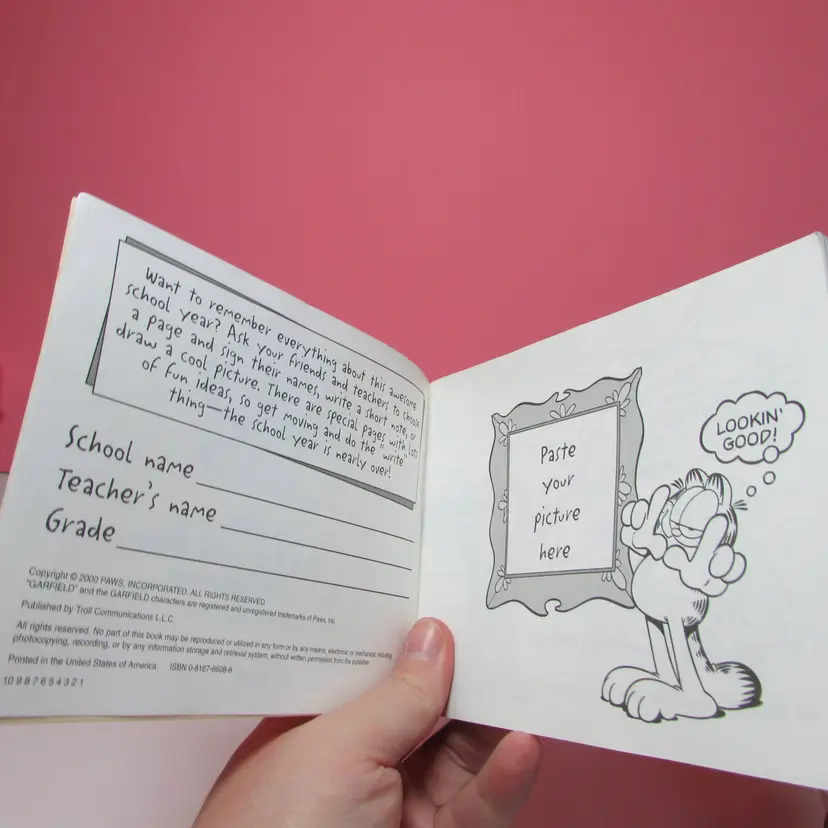 Want to remember everything about this awesome
school year? Ask your friends and teachers to choose
a page and sign their names, write a short note, or
draw a cool picture. There are special pages with lots
of fun ideas, so get moving and do the "write"
thing—the school year is nearly over!
School name
Teacher's name
Grade
Copyright © 2000 PAWS, INCORPORATED. ALL RIGHTS RESERVED.
"GARFIELD" and the GARFIELD characters are registered and unregistered trademarks of Paws, Inc.
Published by Troll Communications L.L.C.
All rights reserved. No part of this book may be reproduced or utilized in any form or by any means, electronic or mechanical, including
photocopying, recording, or by any information storage and retrieval system, without written permission from the publisher.
Printed in the United States of America ISBN 0-8167-6608-6
10 9 8 7 6 5 4 3 2 1
Paste
your
picture
here
LOOKIN'
GOOD!